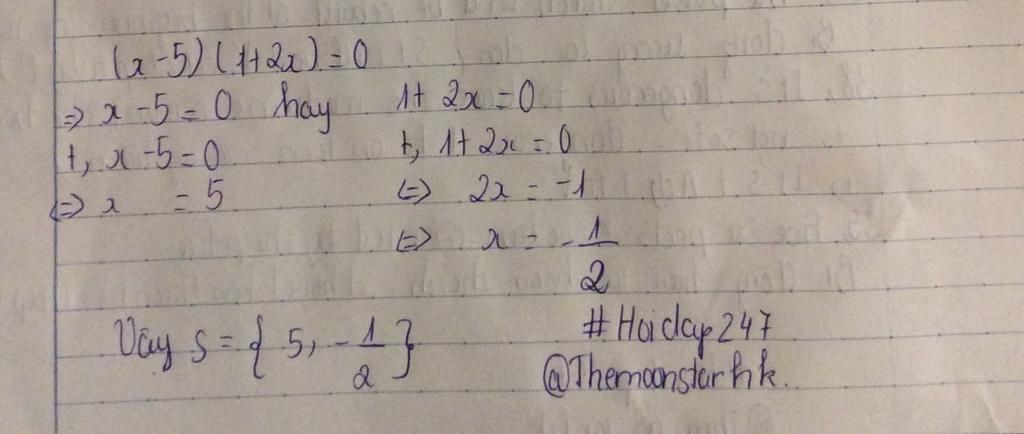 (x-5)(1+2x)=0
=> x-5=0 hay 1+2x=0
+, x-5=0 +, 1+2x=0
<=> x = 5 <=> 2x = -1
<=> x = -1/2
Vậy S = { 5, -1/2 }
#Hoidap247
@Themoonstarhk.